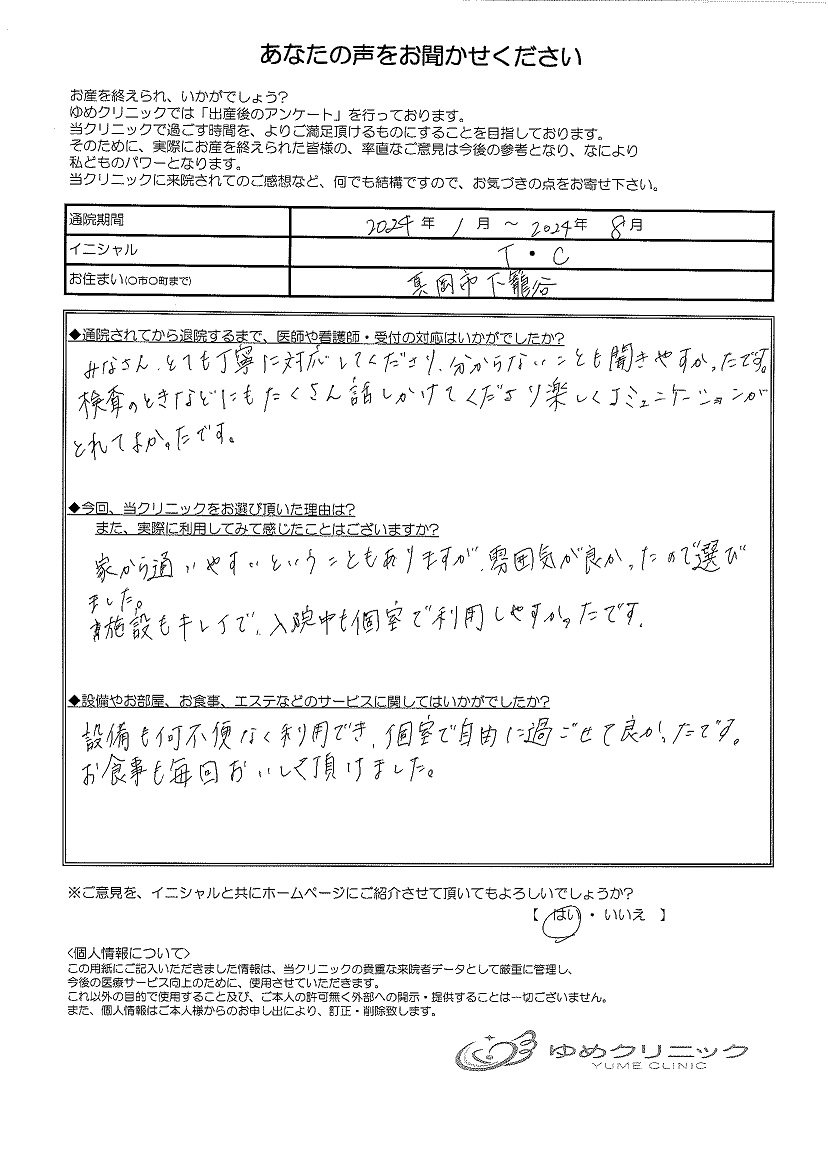 あなたの声をお聞かせください
お産を終えられ、いかがでしょう?
ゆめクリニックでは「出産後のアンケート」を行っております。
当クリニックで過ごす時間を、よりご満足頂けるものにすることを目指しております。
そのために、実際にお産を終えられた皆様の、率直なご意見は今後の参考となり、なにより
私どものパワーとなります。
当クリニックに来院されてのご感想など、何でも結構ですので、お気づきの点をお寄せ下さい。
通院期間 2024年 1月 ～ 2024年 8月
イニシャル T・C
お住まい(○市○町まで) 真岡市下籠谷
◆通院されてから退院するまで、医師や看護師・受付の対応はいかがでしたか?
みなさん、とても丁寧に対応してくださり、分からないことも聞きやすかったです。
検査のときなどにもたくさん話しかけてくださり楽しくコミュニケーションが
とれてよかったです。
◆今回、当クリニックをお選び頂いた理由は?
また、実際に利用してみて感じたことはございますか?
家から通いやすいということもありますが、雰囲気が良かったので選び
ました。
施設もキレイで、入院中も個室で利用しやすかったです。
◆設備やお部屋、お食事、エステなどのサービスに関してはいかがでしたか?
設備も何不便なく利用でき、個室で自由に過ごせて良かったです。
お食事も毎回おいしく頂けました。
※ご意見を、イニシャルと共にホームページにご紹介させて頂いてもよろしいでしょうか?
【 はい ・ いいえ 】
<個人情報について>
この用紙にご記入いただきました情報は、当クリニックの貴重な来院者データとして厳重に管理し、
今後の医療サービス向上のために、使用させていただきます。
これ以外の目的で使用すること及び、ご本人の許可無く外部への開示・提供することは一切ございません。
また、個人情報はご本人様からのお申し出により、訂正・削除致します。
ゆめクリニック
YUME CLINIC